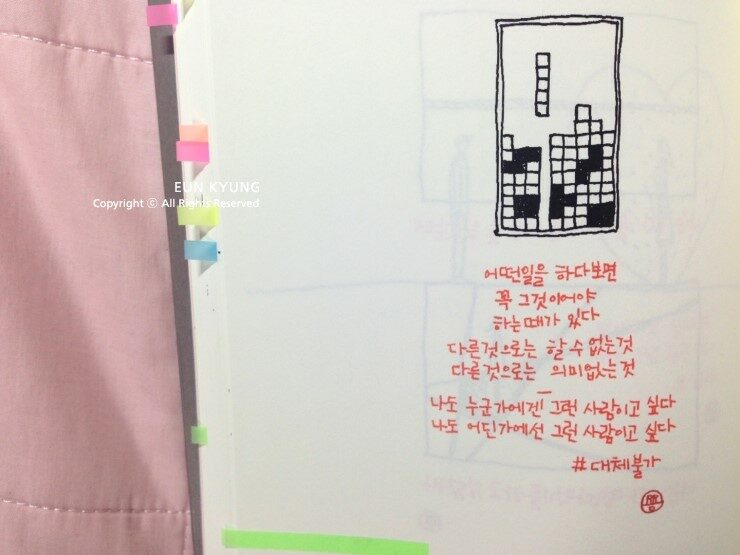 EUN KYUNG
Copyright ⓒ All Rights Reserved
어떤일을 하다보면
꼭 그것이어야
하는때가 있다
다른것으로는 할 수 없는것
다른것으로는 의미없는것
나도 누군가에겐 그런 사람이고 싶다
나도 어딘가에선 그런 사람이고 싶다
#대체불가